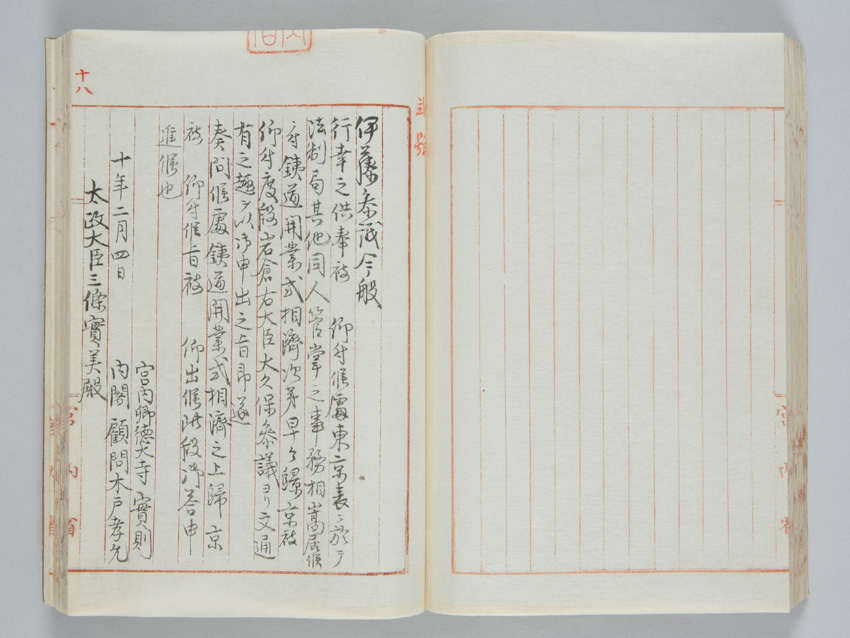 十八
伊藤参議今般
行幸之供奉被 仰付候處東京表ニ於テ
法制局其他同人管掌之事務相嵩居候
ニ付鉄道開業式相濟次第早々歸京被
仰付度段岩倉右大臣大久保参議ヨリ文通
有之趣ヲ以御申出之旨即遂
奏聞候處鉄道開業式相濟之上歸京
被 仰付候旨被 仰出候此段御答申
進候也
十年二月四日
宮内卿徳大寺實則
内閣顧問木戸孝允
太政大臣三條實美殿
宮内省
宮内省